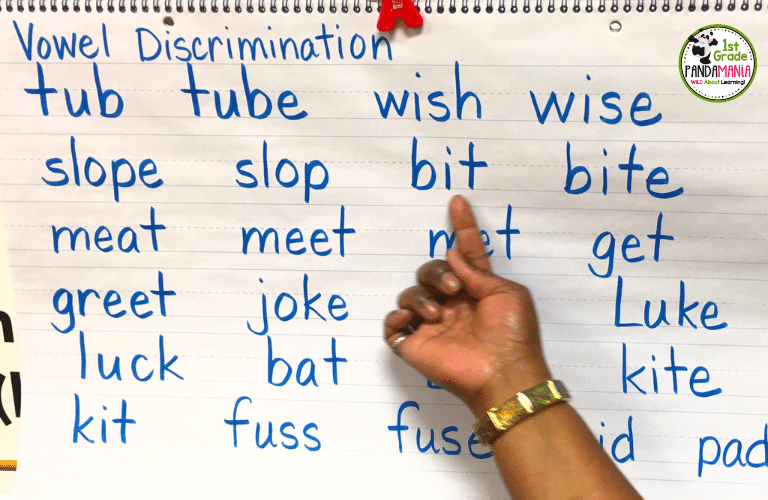 Vowel Discrimination
tub tube wish wise
slope slop bit bite
meat meet met get
greet joke Luke
luck bat kite
kit fuss fuse pad
1st
Grade
PANDAMANIA
WILD About Learning!